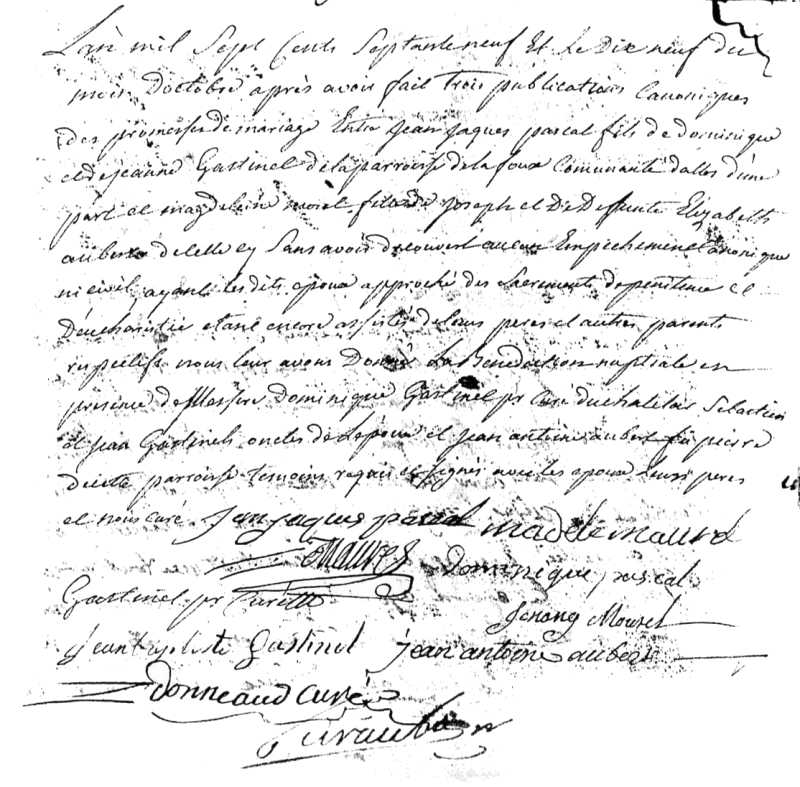 L'an mil Sept Cents Septante neuf Et Le Dix neuf du
mois Doctobre après avoir fait Trois publications Canoniques
des promesses de mariage Entre Jean Jaques pascal fils de dominique
et de jeanne Gastinel de la parroisse de la foux Communauté dallos d'une
part et magdeleine morel fille de Joseph et De Deffunte Elizabeth
aubert de cette cy Sans avoir découvert aucun Empechement Canonique
ni civil, ayant les dits epoux approché des Sacrements de penitence et
Deucharistie etant encore assistés de leurs peres et autres parents
respectifs nous leur avons Donné La Bénédiction nuptiale en
présence de Messire Dominique Gastinel ptr Curé du
et jean Gastinel oncles de Lepoux et Jean antoine aubert feu pierre
de cette parroisse temoins requis et signés avec les epoux leurs peres
et nous curé. Jean jaques pascal
Dominique pascal
Gastinel ptr
Gastinel jean antoine aubert
donneaud curé